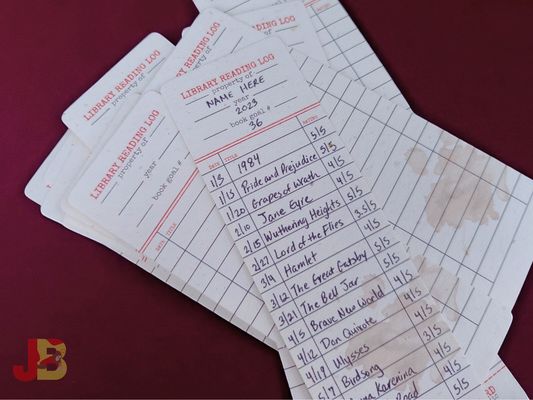 LIBRARY READING LOG
property of
LIBRARY READING LOG
property of
LIBRARY READING LOG
property of
year
book goal #
DATE TITLE
LIBRARY READING LOG
property of
NAME HERE
year
2023
book goal #
36
DATE TITLE RATING
1/3 1984 5/5
1/15 Pride and Prejudice 5/5
1/20 Grapes of Wrath 4/5
2/10 Jane Eyre 4/5
2/15 Wuthering Heights 5/5
2/27 Lord of the Flies 3.5/5
3/4 Hamlet 4/5
3/12 The Great Gatsby 5/5
3/21 The Bell Jar 5/5
4/5 Brave New World 4/5
4/12 Don Quixote 4/5
4/19 Ulysses 3/5
5/7 Birdsong 4/5
Karenina 5/5
Road
JB